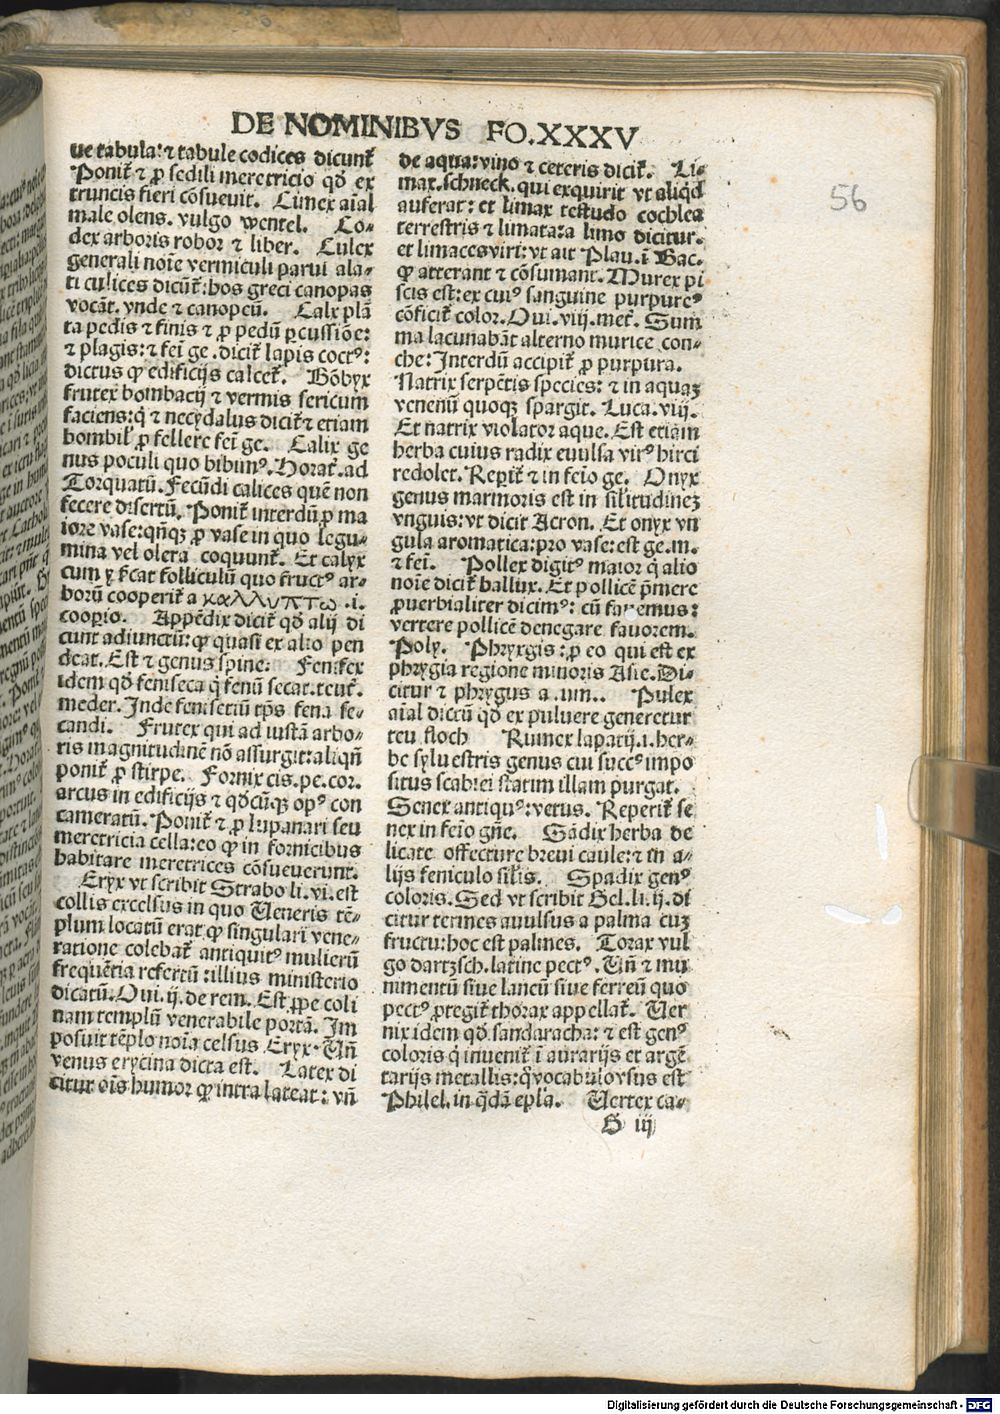 DE NOMINIBVS FO.XXXV
56
ue tabula: ⁊ tabule codices dicunt᷑
Ponit᷑ ⁊ ꝓ sedili meretricio qđ ex
truncis fieri cõsueuit. Cimex aīal
male olens. vulgo wentel. Co-
dex arboris robor ⁊ liber. Culex
generali noīe vermiculi parui ala-
ti culices dicūt᷑: hos greci canopas
vocāt. vnde ⁊ canopeū. Calx plā
ta pedis ⁊ finis ⁊ ꝓ pedū ꝑcussiõe:
⁊ plagis: ⁊ fei᷑ ge. dicit᷑ lapis coctꝰ:
dictus ꝙ edificijs calcet᷑. Bõbyx
frutex bombacij ⁊ vermis sericum
faciens: q̇ ⁊ necydalus dicit᷑ ⁊ etiam
bombil᷑ ꝓ fellere fei᷑ ge. Calix ge
nus poculi quo bibimꝰ. Horat᷑. ad
Torquatū. Fecūdi calices quē non
fecere disertū. Ponit᷑ interdū ꝓ ma
iore vase: qñqꝫ ꝓ vase in quo legu-
mina vel olera coquunt᷑. Et calyx
cum y f᷑cat folliculū quo fructꝰ ar-
borū cooperit᷑ a καλλυπτω .i.
cooperio. Appēdix dicit᷑ qđ alij di
cunt adiunctū: ꝙ quasi ex alio pen
deat. Est ⁊ genus spine: Fenifex
idem qđ feniseca q̇ fenū secat. teut᷑.
meder. Inde fenisetiū tp̄s fena se-
candi. Frutex qui ad iustā arbo-
ris magnitudinē nõ assurgit: aliqñ
ponit᷑ ꝓ stirpe. Fornix cis. pe. cor.
arcus in edificijs ⁊ qđcūqꝫ opꝰ con
cameratū. Ponit᷑ ⁊ ꝓ lupanari seu
meretricia cella: eo ꝙ in fornicibus
habitare meretrices cõsueuerunt.
Eryx vt scribit Strabo li. vi. est
collis excelsus in quo Veneris tē-
plum locatū erat ꝙ singulari vene-
ratione colebat᷑ antiquitꝰ mulierū
frequētia refertū: illius ministerio
dicatū. Oui. ij. de rem. Est ꝓpe coli
nam templū venerabile portā. Im
posuit tēplo noīa celsus Eryx. Vñ
venus erycina dicta est. Latex di
citur oīs humor ꝙ intra lateat: vñ
de aqua: vino ⁊ ceteris dicit᷑. Li-
max. schneck. qui exquirit vt aliqđ
auferat: et limax testudo cochlea
terrestris ⁊ limatara: a limo dicitur.
et limaces viri: vt ait Plau. ī Bac.
ꝙ atterant ⁊ cõsumant. Murex pi
scis est: ex cuiꝰ sanguine purpureꝰ
cõficit᷑ color. Oui. viij. met᷑. Sum
ma lacunabāt alterno murice con-
che: Interdū accipit᷑ ꝓ purpura.
Natrix serpētis species: ⁊ in aquaꝫ
venenū quoqꝫ spargit. Luca. viij.
Et natrix violator aque. Est etiam
herba cuius radix euulsa virꝰ hirci
redolet. Reꝑit᷑ ⁊ in feīo ge. Onyx
genus marmoris est in sil᷑itudinez
vnguis: vt dicit Acron. Et onyx vn
gula aromatica: pro vase: est ge. m.
⁊ fei᷑. Pollex digitꝰ maior q̇ alio
noīe dicit᷑ hallux. Et pollicē p̄mere
ꝓuerbialiter dicimꝰ: cū fauemus:
vertere pollicē denegare fauorem.
Poly. Phryxgis: ꝓ eo qui est ex
phrygia regione minoris Asie. Di-
citur ⁊ phrygus a .um.. Pulex
aīal dictū qđ ex puluere generetur
teu floch Rumex lapatij .i. her-
be syluestris genus cui succꝰ impo
situs scabiei statim illam purgat.
Senex antiquꝰ: vetus. Reperit᷑ se
nex in feīo gñe. Sādix herba de
licate offecture breui caule: ⁊ in a-
lijs feniculo sil᷑is. Spadix genꝰ
coloris. Sed vt scribit Gel. li. ij. di
citur termes auulsus a palma cuz
fructu: hoc est palmes. Torax vul
go dartzsch. latine pectꝰ. Vñ ⁊ mu
nimentū siue laneū siue ferreū quo
pectꝰ ꝓtegit᷑ thorax appellat᷑. Ver
nix idem qđ sandaracha: ⁊ est genꝰ
coloris q̇ inuenit᷑ ī aurarijs et argē
tarijs metallis: q̇ vocabulo vsus est
Philel. in q̇dā epl᷑a. Vertex ca-
G iij
Digitalisierung gefördert durch die Deutsche Forschungsgemeinschaft - DFG